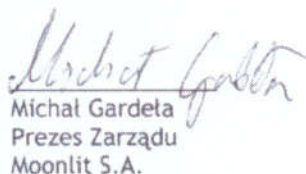 Michał Gardeła
Michał Gardeła
Prezes Zarządu
Moonlit S.A.